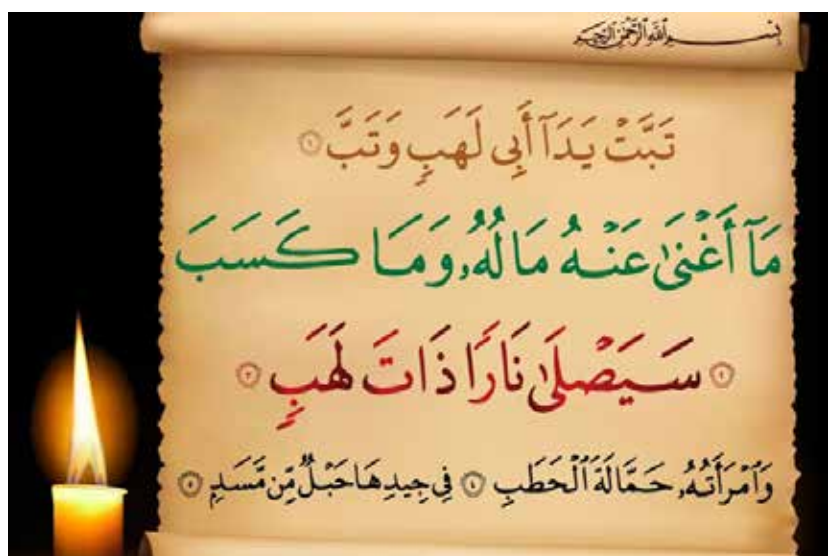 بِسْمِ ٱللَّهِ ٱلرَّحْمَٰنِ ٱلرَّحِيمِ
تَبَّتْ يَدَآ أَبِى لَهَبٍ وَتَبَّ ١
مَآ أَغْنَىٰ عَنْهُ مَالُهُۥ وَمَا كَسَبَ
٢ سَيَصْلَىٰ نَارًا ذَاتَ لَهَبٍ ٣
وَٱمْرَأَتُهُۥ حَمَّالَةَ ٱلْحَطَبِ ٤ فِى جِيدِهَا حَبْلٌ مِّن مَّسَدٍۭ ٥